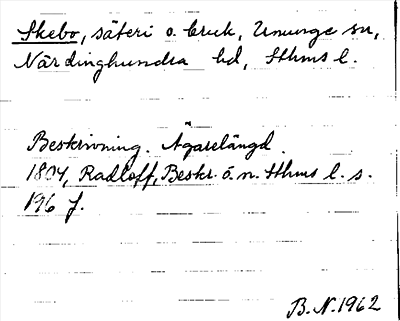 Skebo, säteri o. bruk, Ununge sn,
Närdinghundra hd, Sthms l.
Beskrivning. Ägarelängd.
1804, Radloff, Beskr. ö. n. Sthms l. s.
196 f.
B.N. 1962